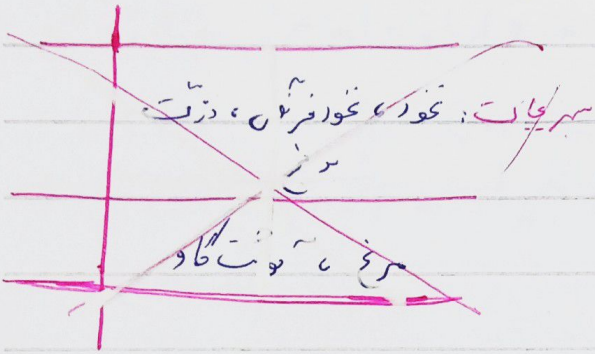 سبزیجات: نخود، نخود فرنگی، ذرت
مرغ، گوشت گاو